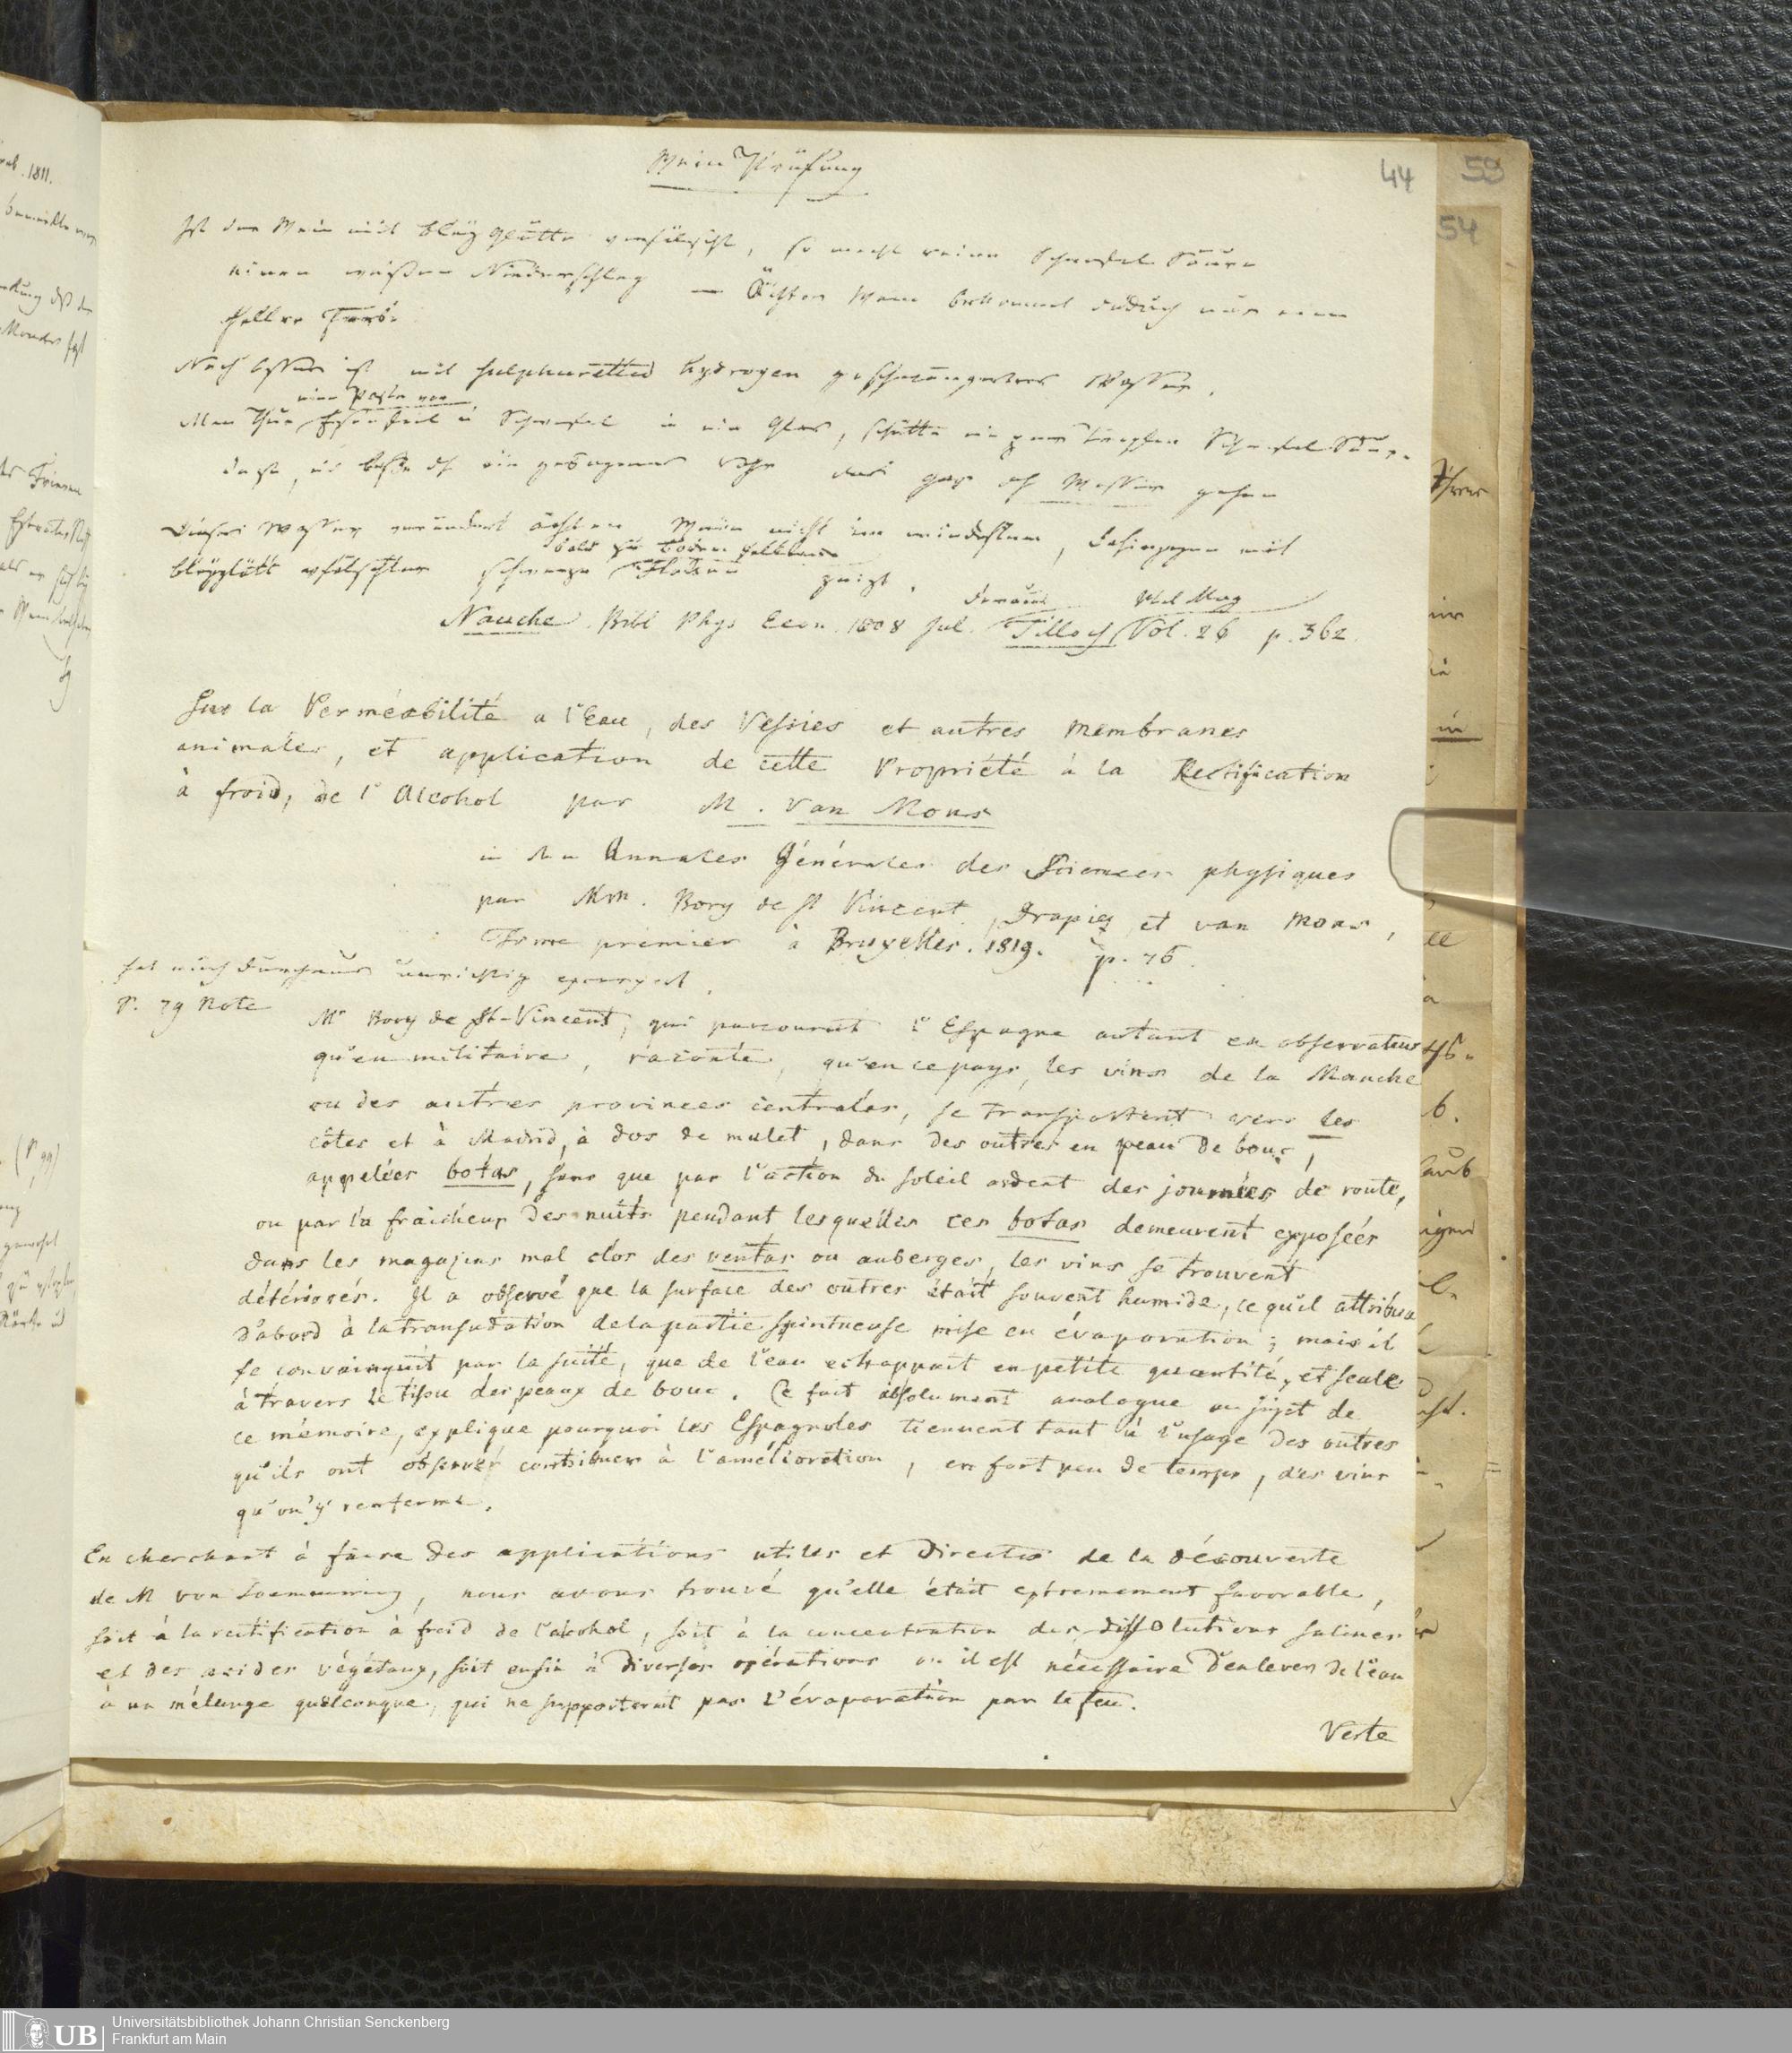 Wein Prüfung
44
59
54
Ist der Wein mit Bleyglätte verfälscht, so macht reine Schwefel Säure
einen weißen Niederschlag — Ächter Wein bekommt dadurch nur eine
hellere Farbe
Noch besser ist mit sulphuretted hydrogen geschwängertes Wasser.
eine Paste von
Man thue Eisenfeil u Schwefel in ein Glas, schütte ein paar Tropfen Schwefel Säure
dazu, und laße dh ein gebogenes Rohr das gas dh Wasser gehen
Dieses Wasser verändert ächten Wein nicht im mindesten, dahingegen mit
bald zu Boden fallende
Bleyglätt verfälschter schwarze Flocken zeigt.
daraus Phil Mag
Nauche. Bibl Phys Econ. 1808 Jul. Tilloch Vol. 26 p. 362.
Sur la Perméabilité a l'Eau, des Vessies et autres Membranes
animales, et application de cette Propriété à la Rectification
à froid, de l'Alcohol par M. Van Mons
in den Annales Générales des Sciences physiques
par Mm. Bory de St Vincent, Drapiez et van Mons,
Tome premier à Bruxelles. 1819. p. 76.
hat mich durchaus unrichtig
P. 79 Note
Mr Bory de St-Vincent, qui parcourut l'Espagne autant en observateur
qu'en militaire, raconte, qu'en ce pays, les vins de la Manche
ou des autres provinces centrales, se transportent vers les
côtes et à Madrid, à dos de mulet, dans des outres en peau de bouc,
appelées botas, sans que par l'action du soleil ardent des journées de route,
ou par la fraicheur des nuits pendant lesquelles ces botas demeurent exposées
dans les magazins mal clos des ventas ou auberges, les vins se trouvent
détériorés. Il a observé que la surface des outres était souvent humide, ce qu'il attribua
d'abord à la transudation de la partie spiritueuse mise en évaporation; mais il
se convainquit par la suite, que de l'eau echappait en petite quantité, et seule
à travers le tissu des peaux de bouc. Ce fait absolument analogue au sujet de
ce mémoire, explique pourquoi les Espagnoles tiennent tant à l'usage des outres
qu'ils ont observer contribuer à l'amélioration, en fort peu de temps, des vins
qu'on y renferme.
En cherchant à faire des applications utiles et directes de la découverte
de M von Soemmering, nous avons trouvé qu'elle était extremement favorable,
soit à la rectification à froid de l'alcohol, soit à la concentration des dissolutions salines
et des acides végétaux, soit enfin à diverses opérations ou il est nécessaire d'enlever de l'eau
à un mélange quelconque, qui ne supporterait pas l'évaporation par le feu.
Verte
UB
Universitätsbibliothek Johann Christian Senckenberg
Frankfurt am Main